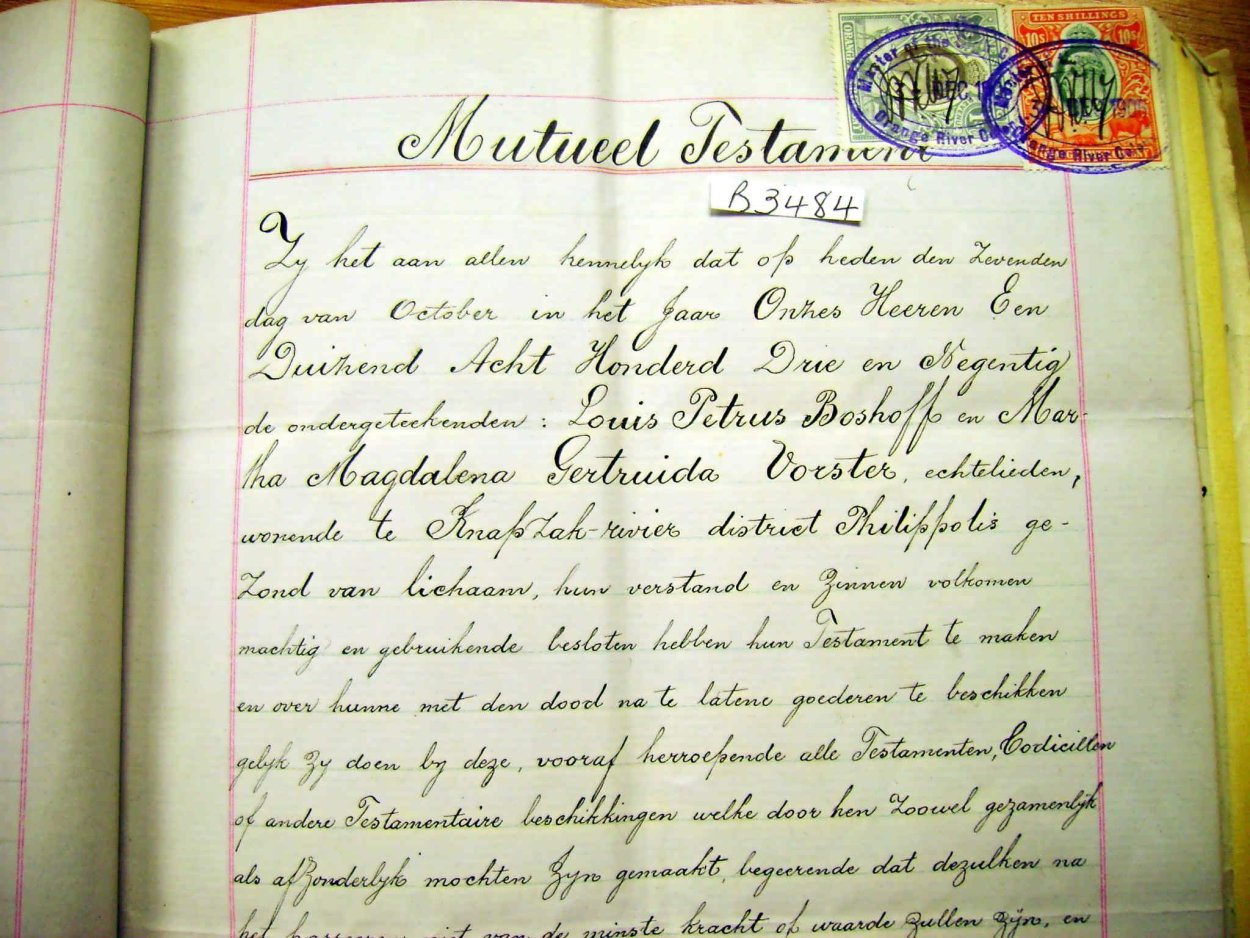 TEN SHILLINGS
10s 10s
ORANGE
Master of the
DEC
Orange River
DEC 1905
Orange River
Mutueel Testament
B3484
Zy het aan allen kennelyk dat op heden den Zevenden
dag van October in het Jaar Onzes Heeren Een
Duizend Acht Honderd Drie en Negentig
de ondergeteekenden : Louis Petrus Boshoff en Mar-
tha Magdalena Gertruida Vorster, echtelieden,
wonende te Knapzak-rivier district Philippolis ge-
zond van lichaam, hun verstand en zinnen volkomen
machtig en gebruikende besloten hebben hun Testament te maken
en over hunne met den dood na te latene goederen te beschikken
gelyk zy doen by deze, vooraf herroepende alle Testamenten, Codicillen
of andere Testamentaire beschikkingen welke door hen zoowel gezamenlyk
als afzonderlyk mochten zyn gemaakt, begeerende dat dezulken na
het niet van de minste kracht of waarde zullen zyn, en